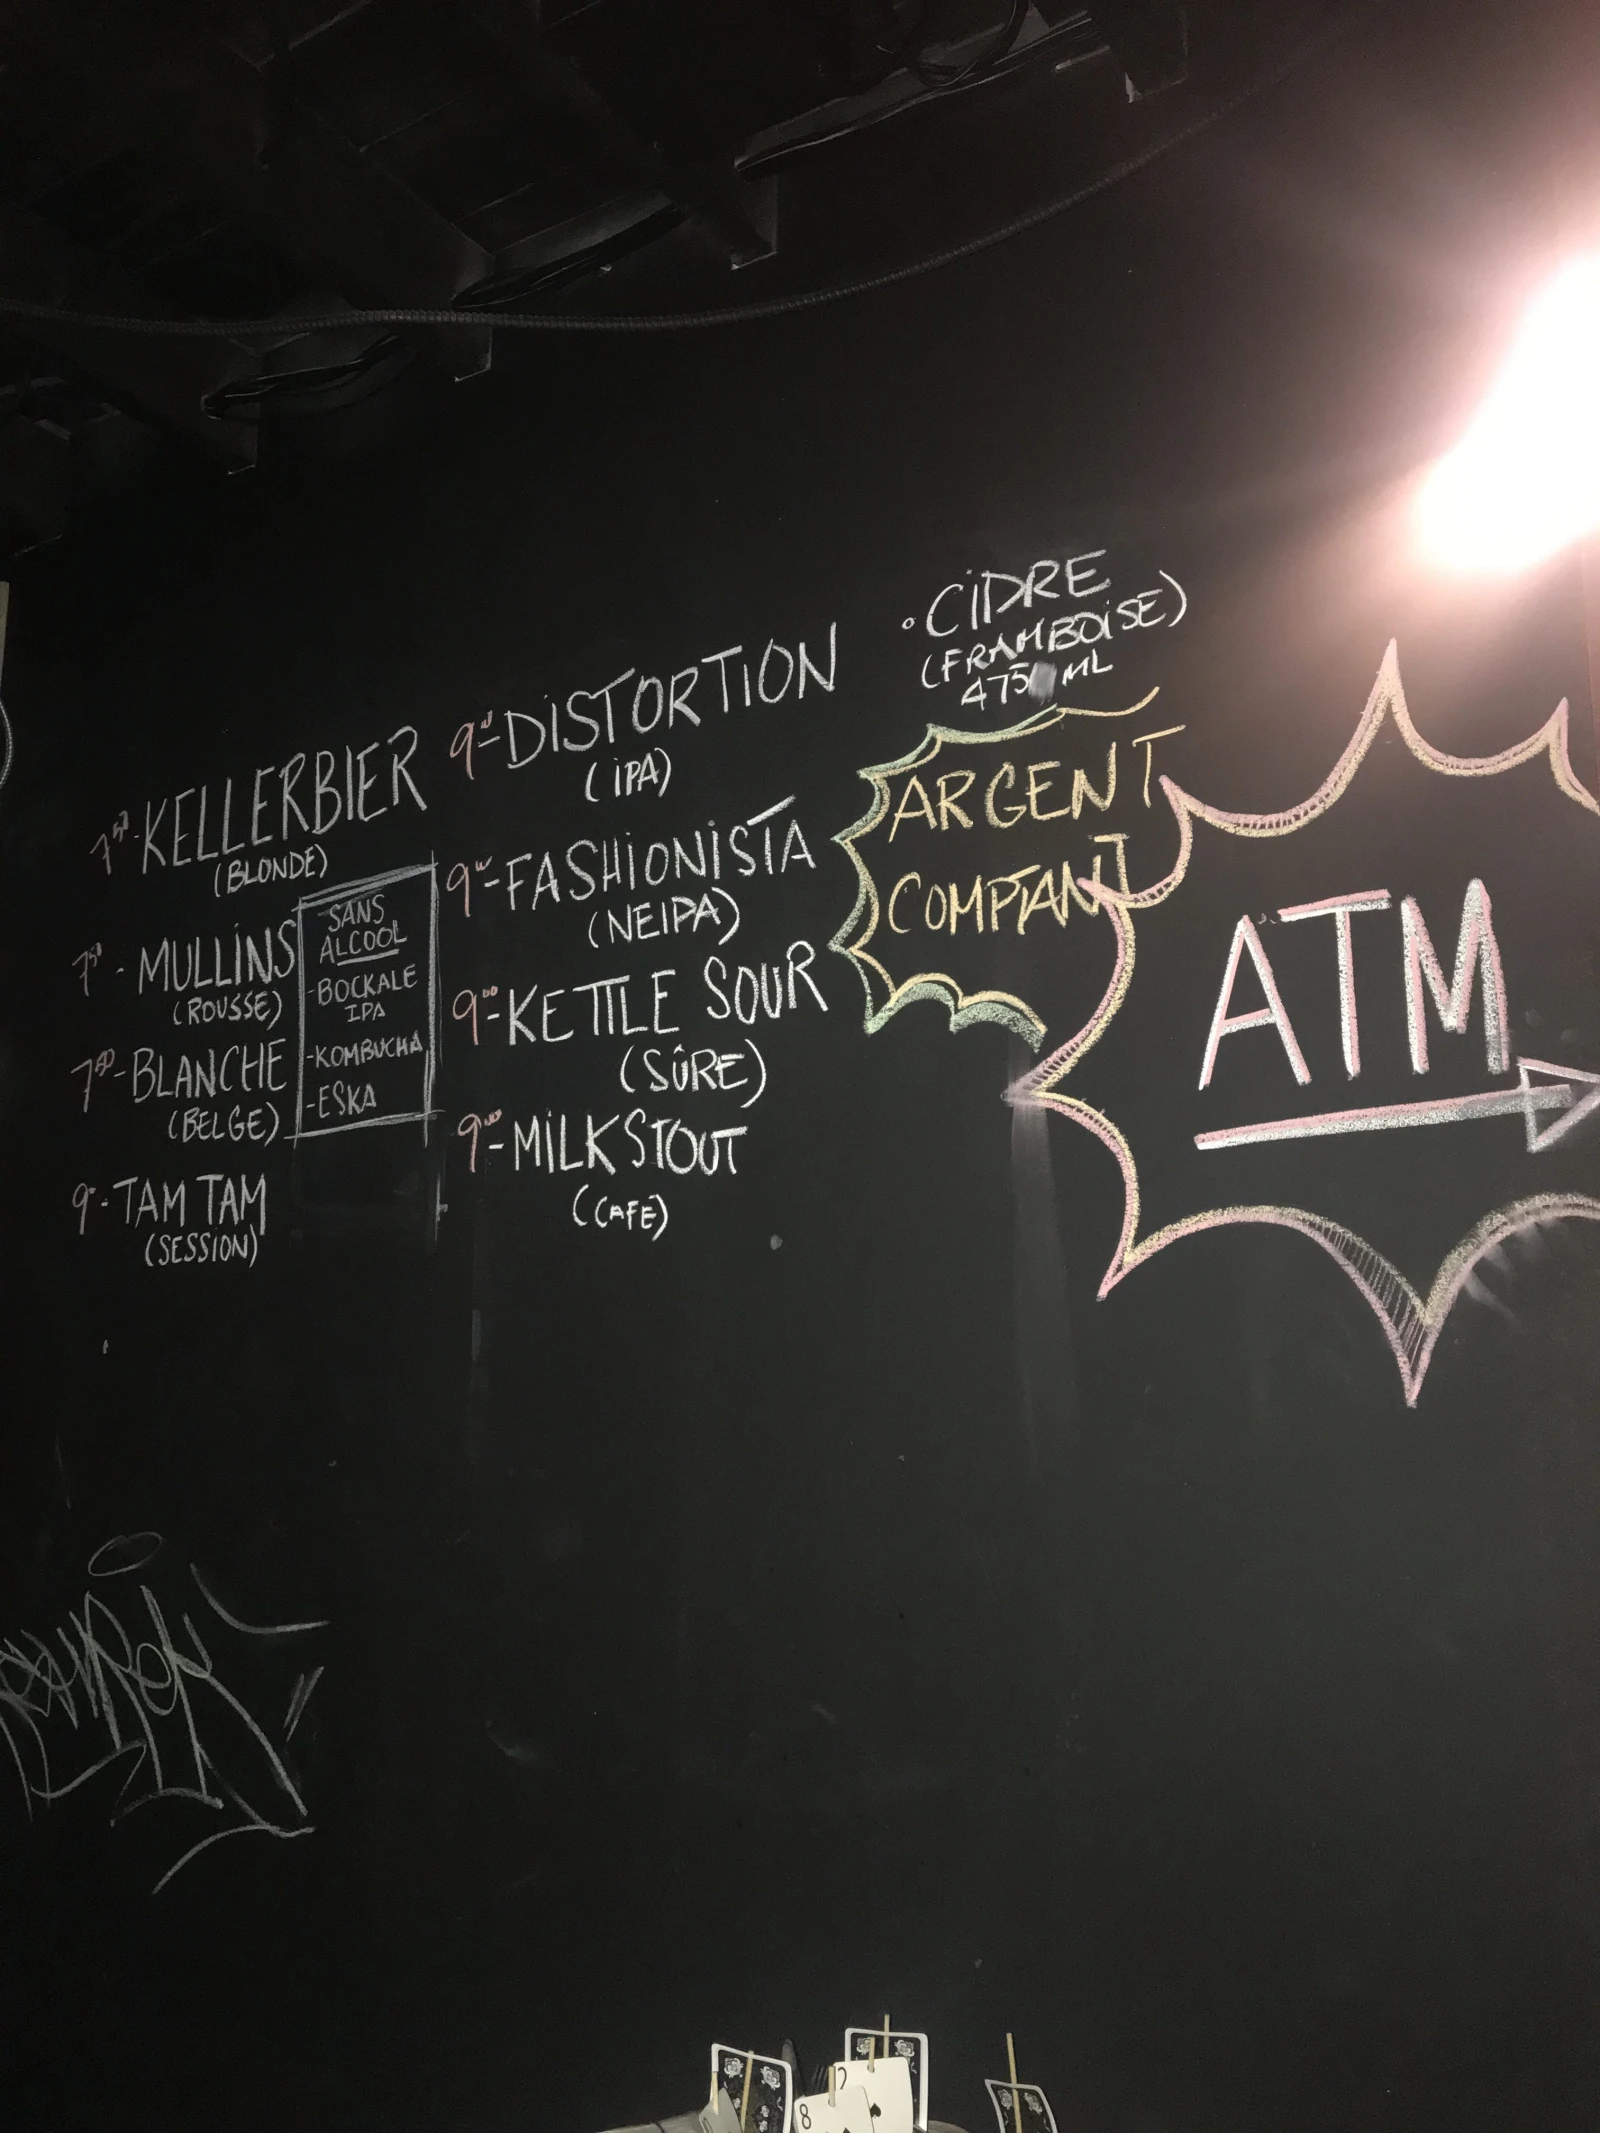 7.50 - KELLERBIER
(BLONDE)
7.50 - MULLINS
(ROUSSE)
7.50 - BLANCHE
(BELGE)
9.- - TAM TAM
(SESSION)
SANS
ALCOOL
- BOCKALE
IPA
- KOMBUCHA
- ESKA
9.00 - DISTORTION
(IPA)
9.00 - FASHIONISTA
(NEIPA)
9.00 - KETTLE SOUR
(SÛRE)
9.00 - MILK STOUT
(CAFE)
• CIDRE
(FRAMBOISE)
475 ML
ARGENT
COMPTANT
ATM
2
8